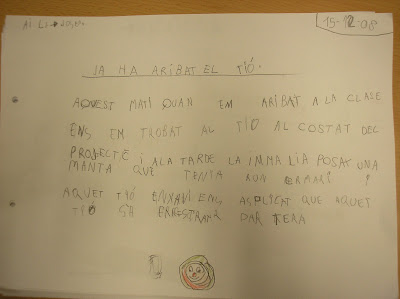 15-12-08
JA HA ARIBAT EL TIÓ.
AQUEST MATI QUAN EM ARIBAT A LA CLASE
ENS EM TROBAT AL TIO AL COSTAT DEL
PROJECTE i ALA TARDE LA IMMA LIA POSAT UNA
MANTA QUE TENIA AL'ARMARI
AQUET TIÓ ENXAVIENS ASPLICAT QUE AQUET
TIÓ SA PER TERA